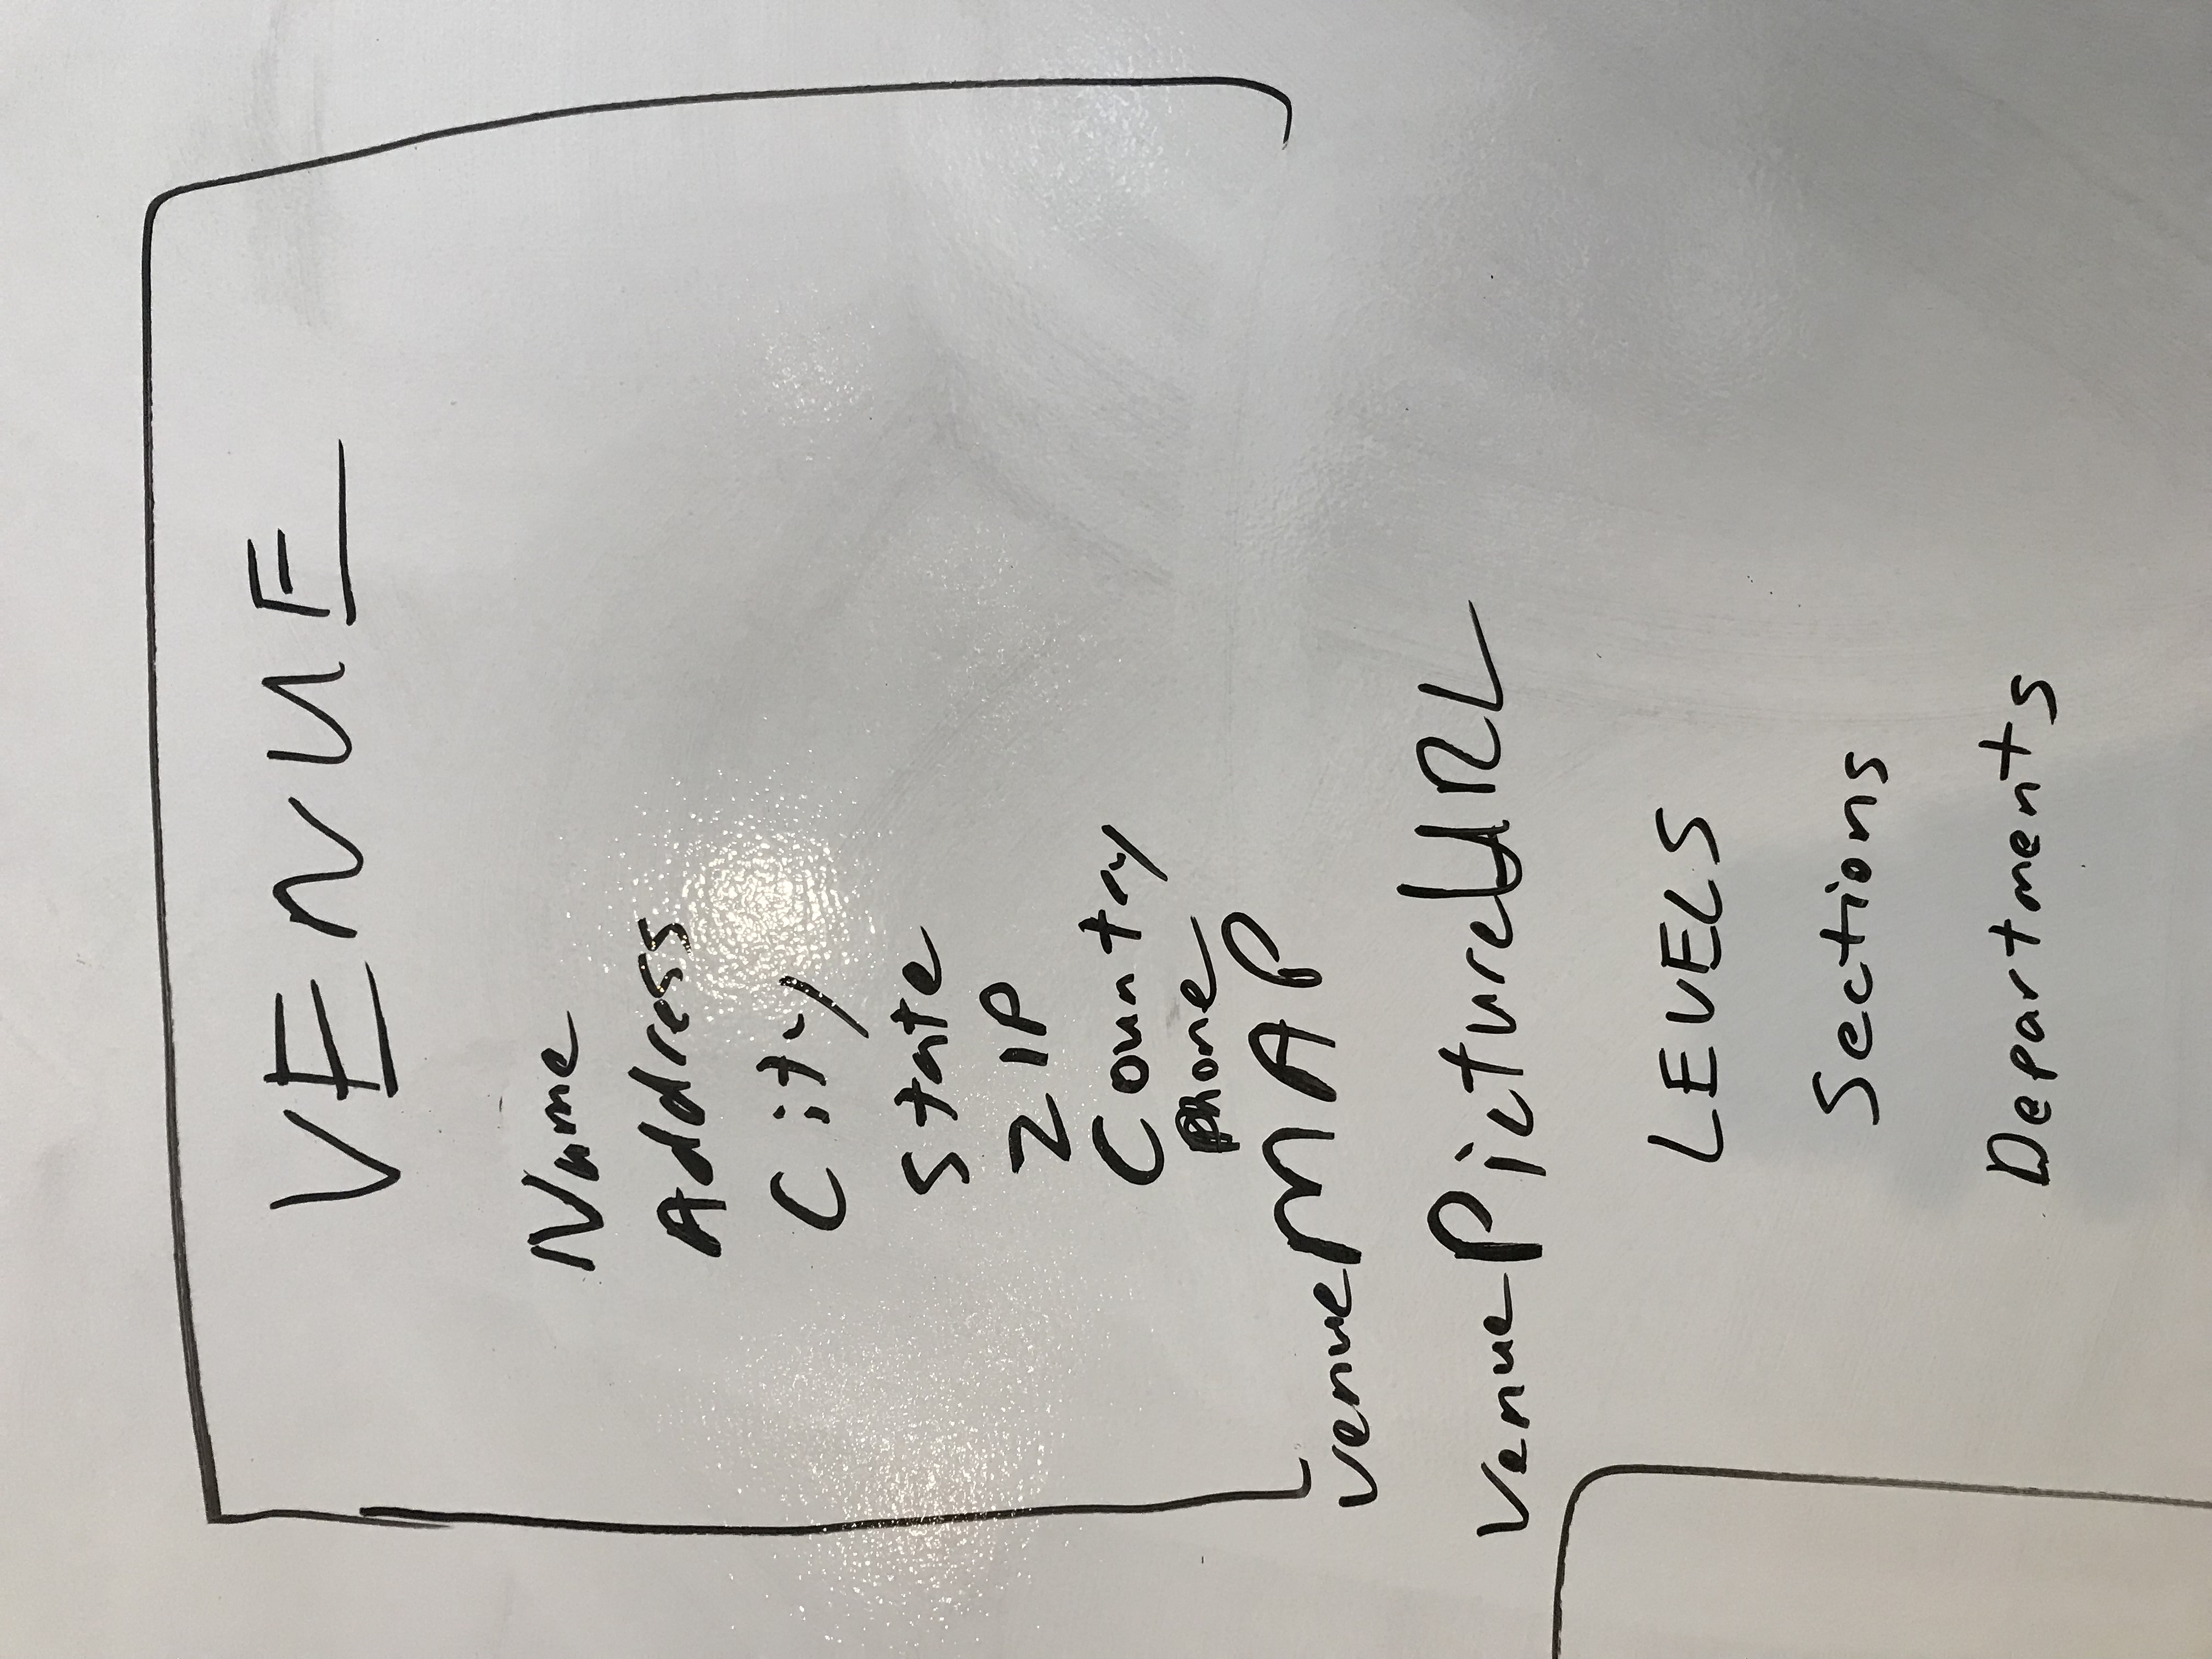 VENUE
Name
Address
City
State
ZIP
Country
Phone
venueMAP
venuePictureURL
LEVELS
Sections
Departments